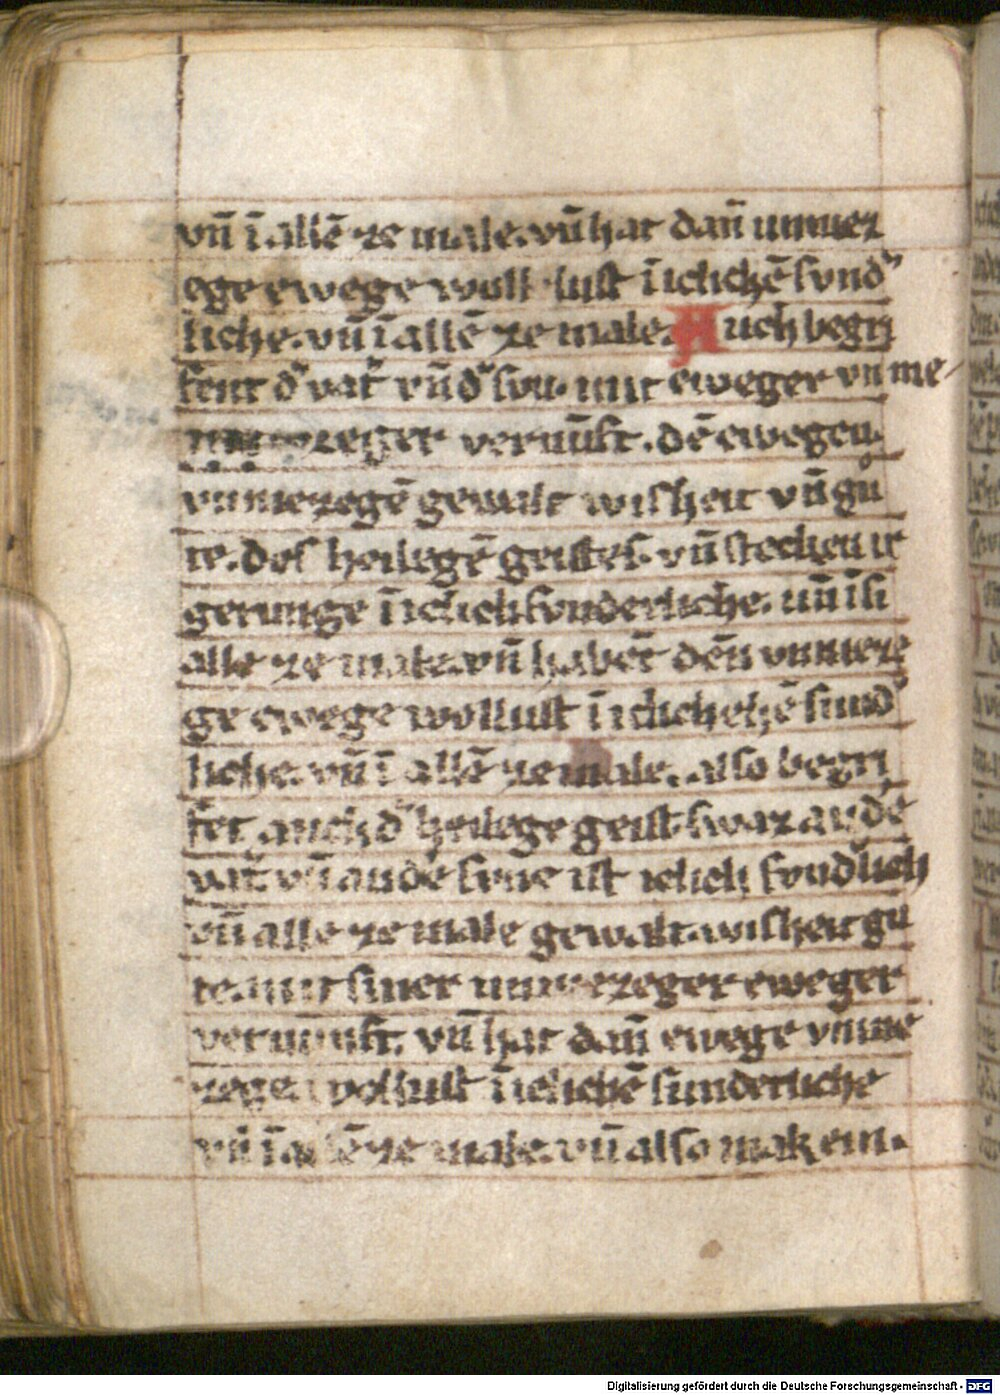 vn̄ ī allē ze male. vn̄ hat dan̄ unmez
ege ewege woll lust īichchē svnd᾽
liche. vn̄ ī allē ze male. Auch begri
fent d᾽ vat᾽ vn̄ d᾽ svn. mit eweger vn me-
zeger vernūft. dē ewegen
vnmezegē gewalt wisheit vn̄ gů
te. des heilegē geistes. vn̄ stecken ir
gerunge ī iclich svnderliche. un̄ ī si
alle ze male. vn̄ habēt dēn vnmeze
ge ewege wollust ī iclichehē sund᾽
liche. vn̄ ī allē ze male. also begri
fet auch d᾽ heilege geist. swaz an dē
vat᾽ vn̄ an dē svne ist iclich svnd᾽lich
vn̄ alle ze male gewalt. wisheit gu
te. mit siner unmezeger eweger
vernunft. vn̄ hat dan̄ ewege vnme
zege wollust ī iclichē sunderliche
vn̄ ī allē ze male. vn̄ also mak ein.
Digitalisierung gefördert durch die Deutsche Forschungsgemeinschaft - DFG